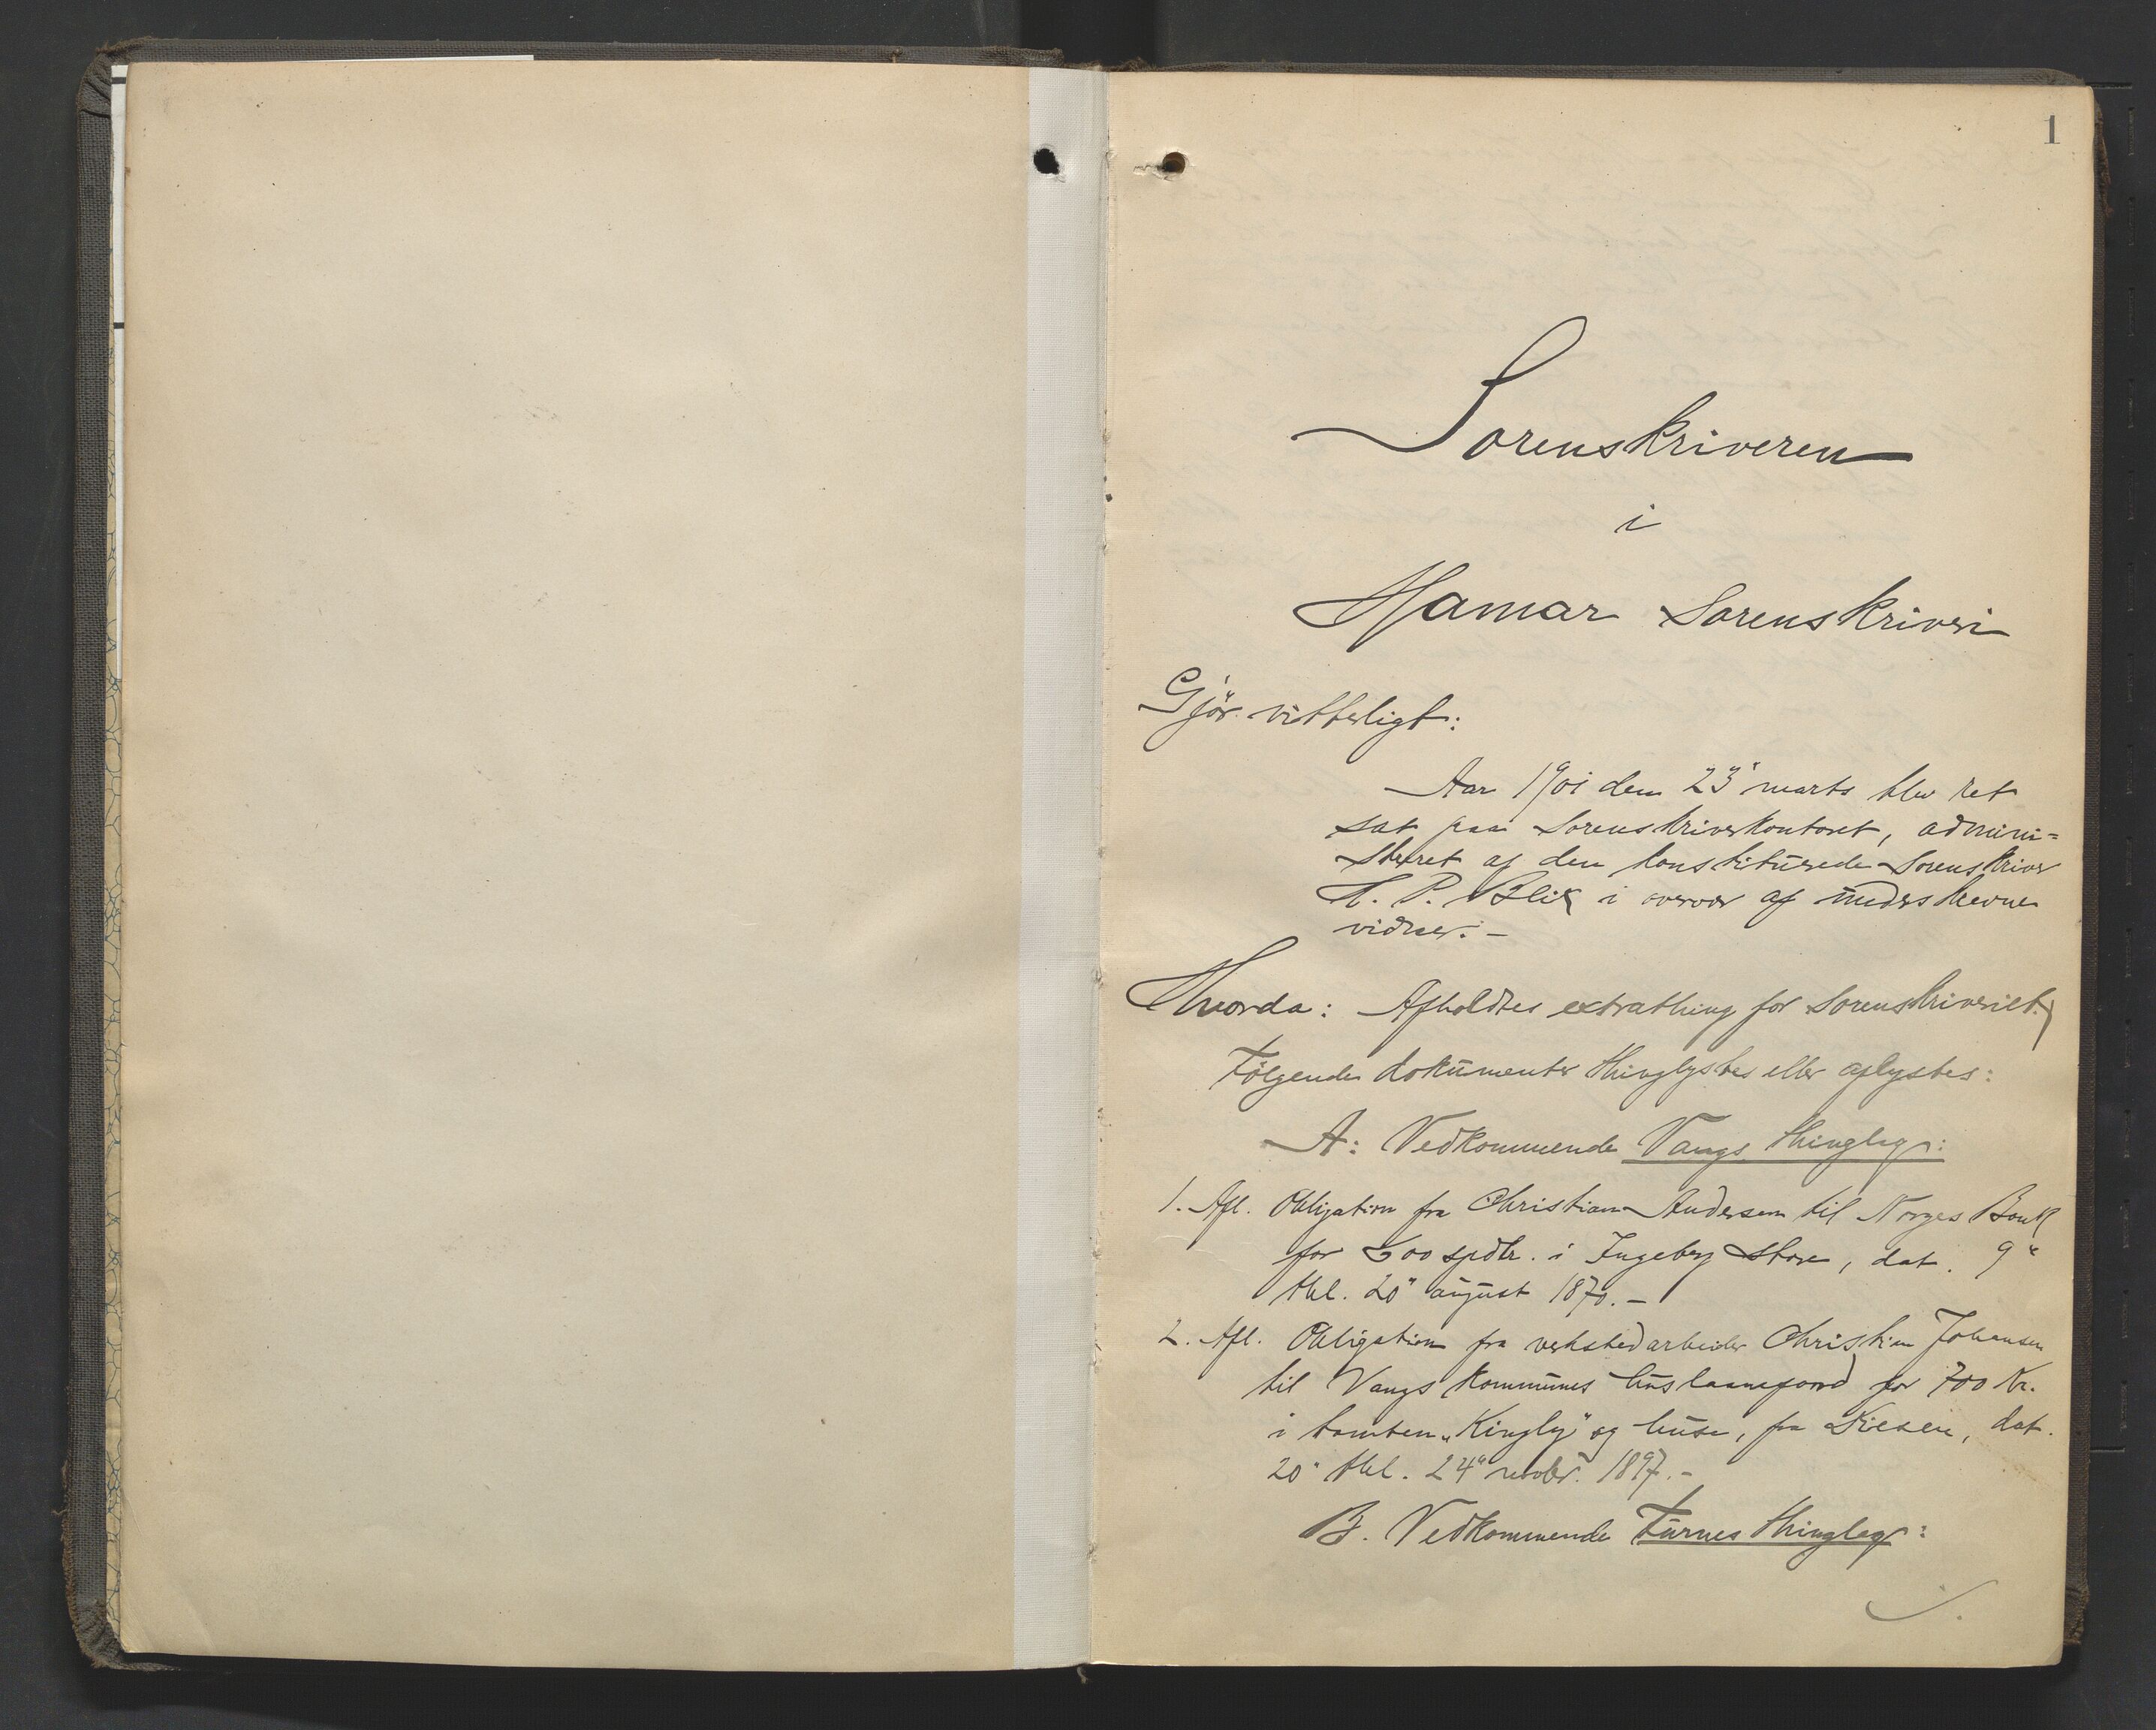 1
Sorenskriveren
i
Hamar Sorenskriveri
Gjör vitterligt:
Aar 1901 den 23" marts blev ret
sat paa Sorenskriverkontoret, admini=
streret af den konstituerede Sorenskriver
H. P. Blix i overvær af underskrevne
vidner. -
Hvorda: Afholdtes extrathing for Sorenskriveriet.
Følgende dokumenter thinglystes eller aflystes:
A: Vedkommende Vangs thinglag:
1. Afl. Obligation fra Christian Andersen til Norges Bank
for 600 spdlr. i Ingeberg store, dat. 9"
thl. 20" august 1870. -
2. Afl. Obligation fra verkstedarbeider Christian Johansen
til Vangs kommunes huslaanefond for 700 Kr.
i tomten og huse, fra dat.
20" thl. 24" novbr. 1897. -
B. Vedkommende Furnes thinglag: